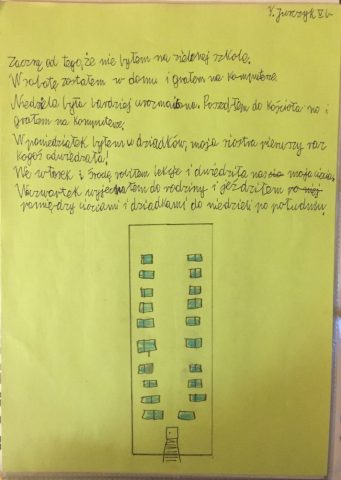 K. Jurczyk V b
Zacznę od tego, że nie byłem na zielonej szkole.
W sobotę zostałem w domu i grałem na komputerze.
Niedziela była bardziej urozmaicona. Poszedłem do kościoła no i
grałem na komputerze.
W poniedziałek byłem u dziadków, moja siostra pierwszy raz
kogoś odwiedzała!
We wtorek i środę robiłem lekcje i odwiedziła nas moja ciocia.
W czwartek wyjechałem do rodziny i jeździłem
pomiędzy ciociami i dziadkami do niedzieli po południu.